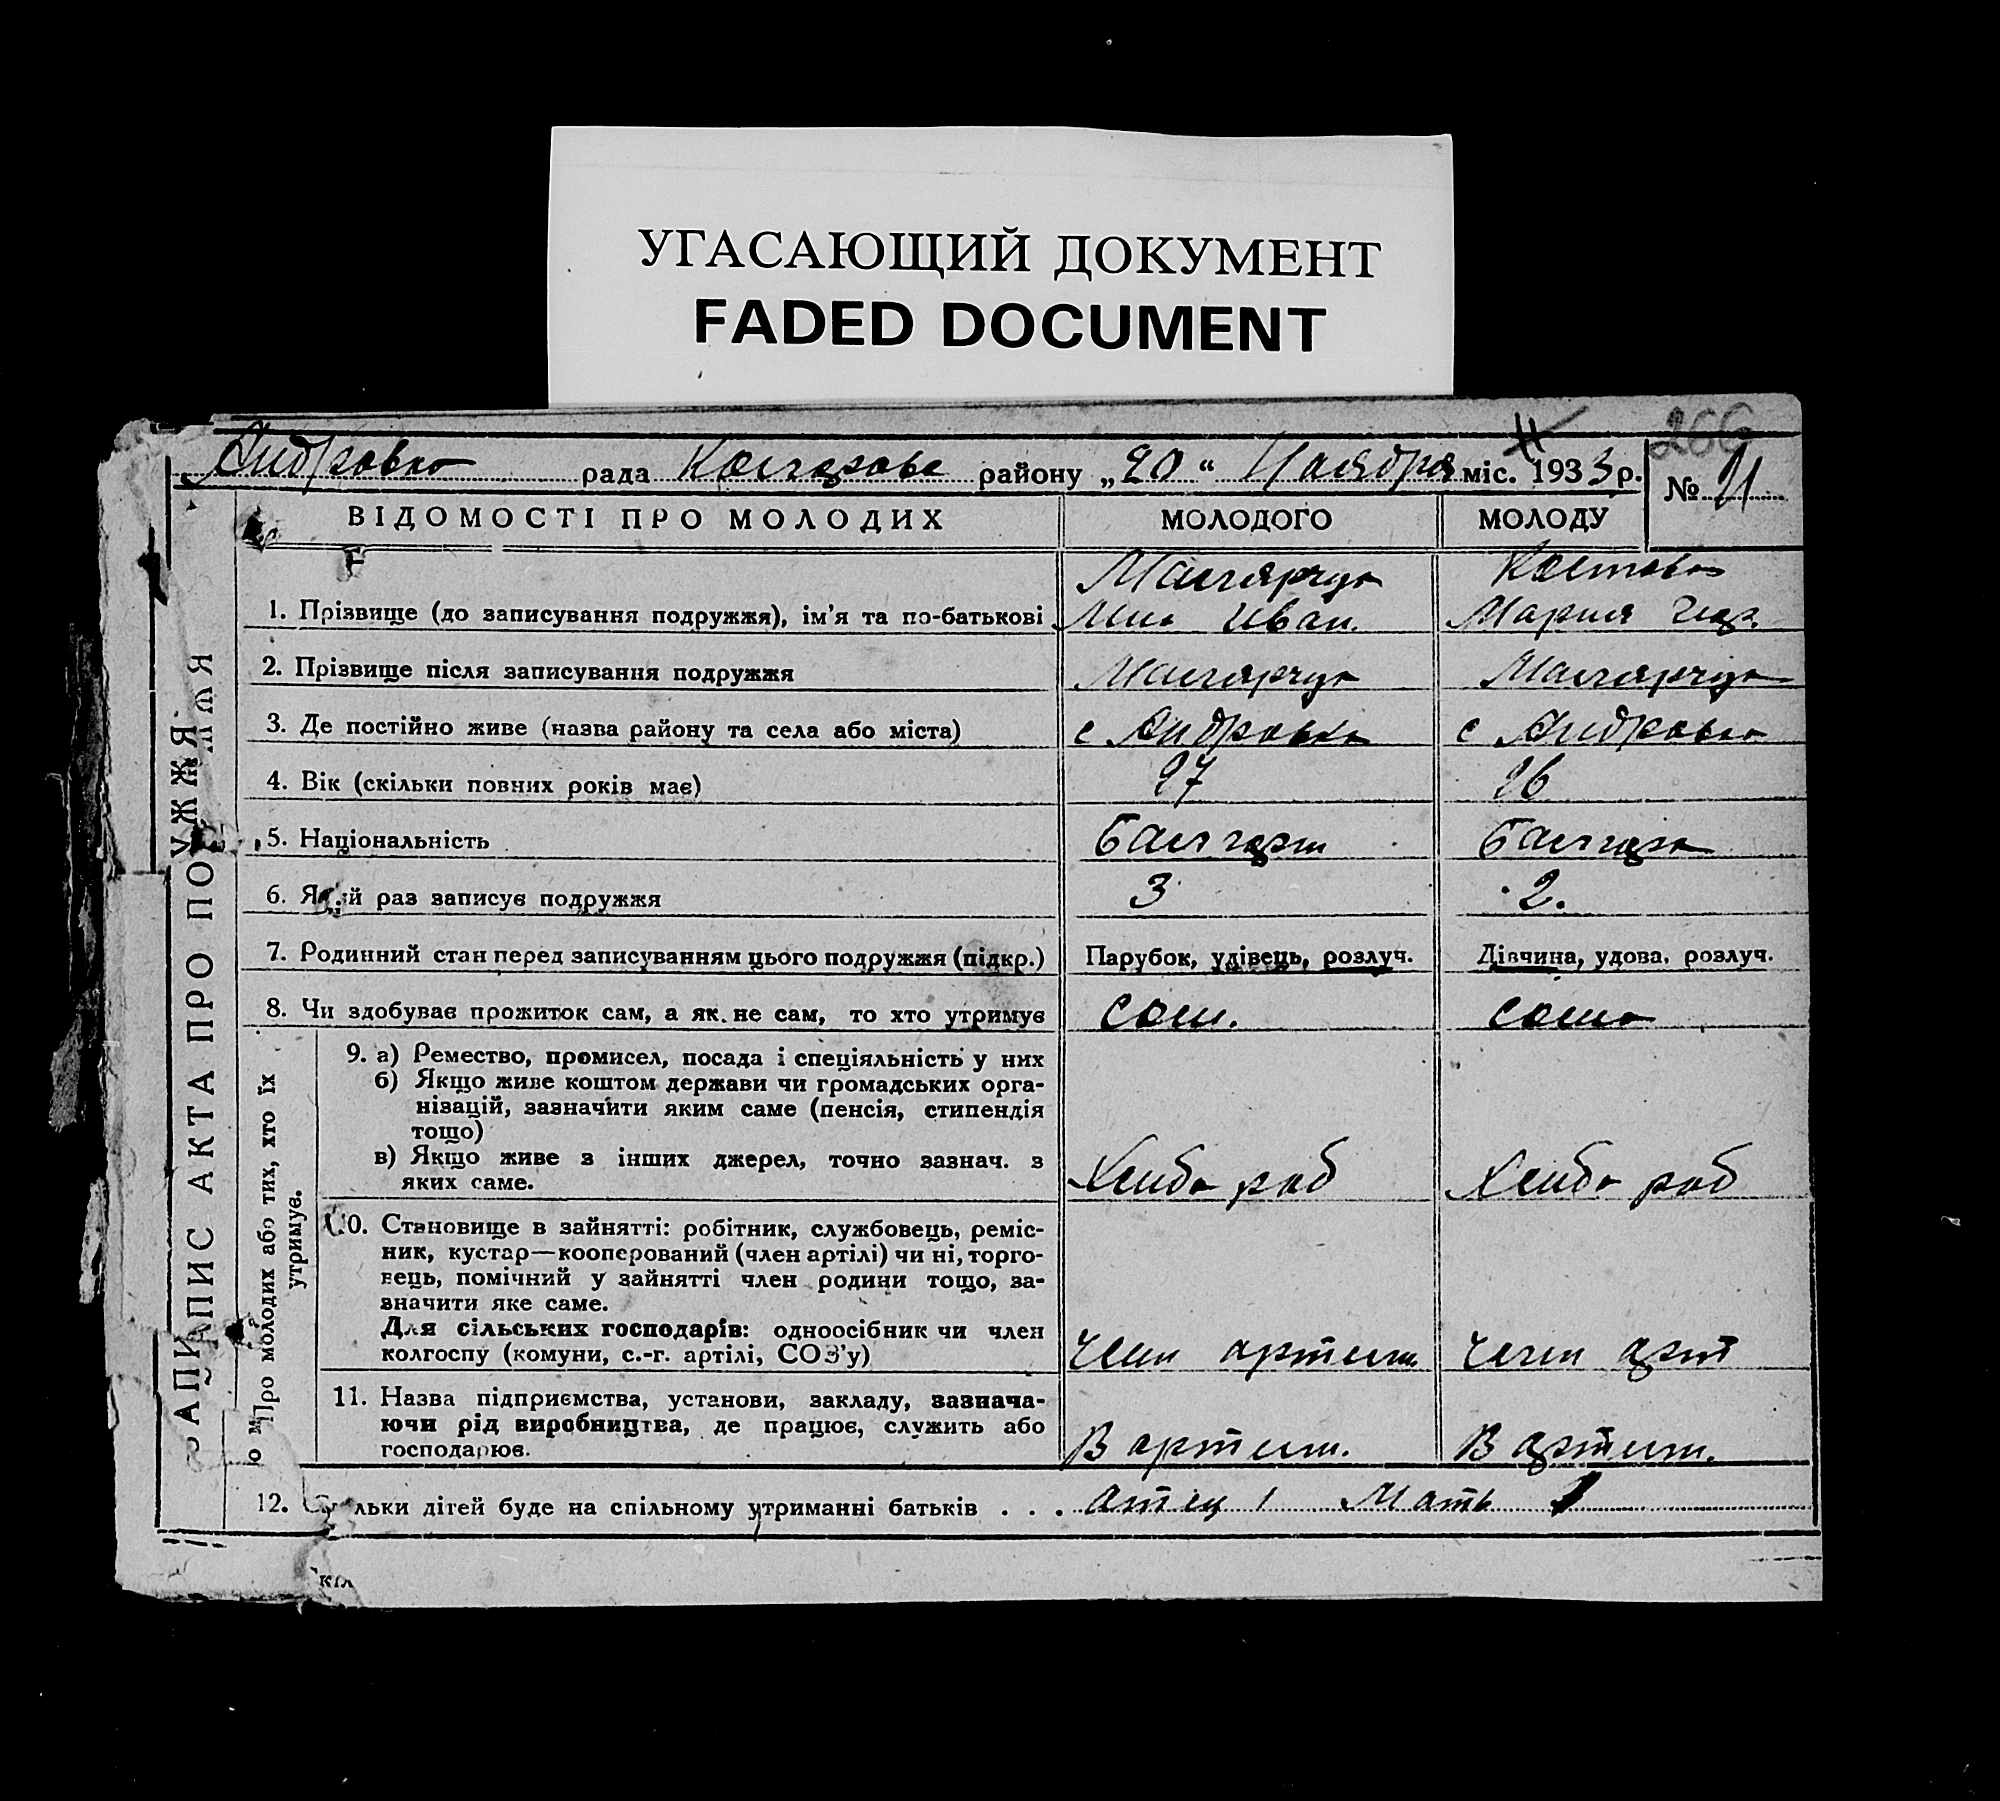 УГАСАЮЩИЙ ДОКУМЕНТ
FADED DOCUMENT
266
Андровка рада района „20“ Наября міс. 1933 р. № 21
ВІДОМОСТІ ПРО МОЛОДИХ МОЛОДОГО МОЛОДУ
1. Прізвище (до записування подружжя), ім’я та по-батькові
Иван. Мария
2. Прізвище після записування подружжя
3. Де постійно живе (назва району та села або міста) с Андровка с Андровка
4. Вік (скільки повних років має) 27 26
5. Національність Балгарин Балгарка
6. Я й раз записує подружжя 3 2.
7. Родинний стан перед записуванням цього подружжя (підкр.) Парубок, удівець, розлуч. Дівчина, удова, розлуч.
8. Чи здобуває прожиток сам, а як не сам, то хто утримує сам. сама
9. а) Ремество, промисел, посада і спеціяльність у них
б) Якщо живе коштом держави чи громадських орга-
нізацій, зазначити яким саме (пенсія, стипендія
тощо)
в) Якщо живе з інших джерел, точно зазнач. з
яких саме. Хлиба роб Хлиба роб
10. Становище в зайнятті: робітник, службовець, реміс-
ник, кустар—кооперований (член артілі) чи ні, торго-
вець, помічний у зайнятті член родини тощо, за-
значити яке саме.
Для сільських господарів: одноосібник чи член
колгоспу (комуни, с.-г. артілі, СОЗ’у) член артели член арт
11. Назва підприємства, установи, закладу, зазнача-
ючи рід виробництва, де працює, служить або
господарює. В артели. В артели.
12. льки дітей буде на спільному утриманні батьків . . . Атец 1 Мать 1
ЗАПИС АКТА ПРО ПОДРУЖЖЯ
Про молодих або тих, хто їх
утримує.